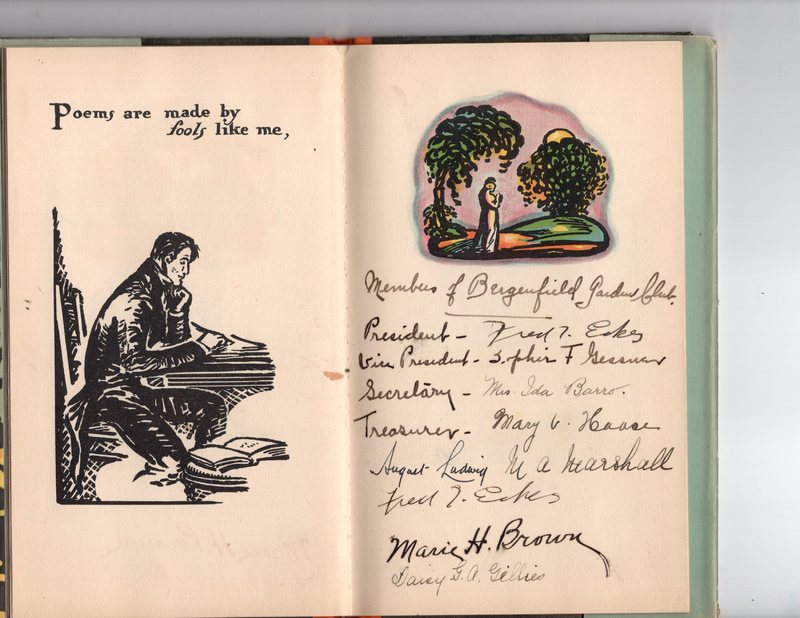 Poems are made by
fools like me,
Members of Bergenfield Garden Club.
President - Fred T. Eckes
Vice President - Sophie F Gessner
Secretary - Mrs. Ida Barro.
Treasurer - Mary V. Haase
August Ludwig M A Marshall
Fred T. Eckes
Marie H. Brown
Daisy G. A. Gillies